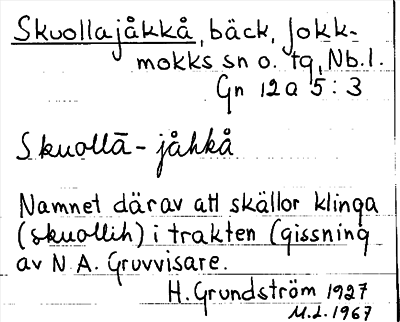 Skuollajåkkå, bäck, Jokk-
mokks sn o. tg, Nb.l.
Gn 12a 5:3
Skuollā-jåhkå
Namnet därav att skällor klinga
(skuollih) i trakten (gissning
av N.A. Gruvvisare.
H. Grundström 1927
M.L. 1967